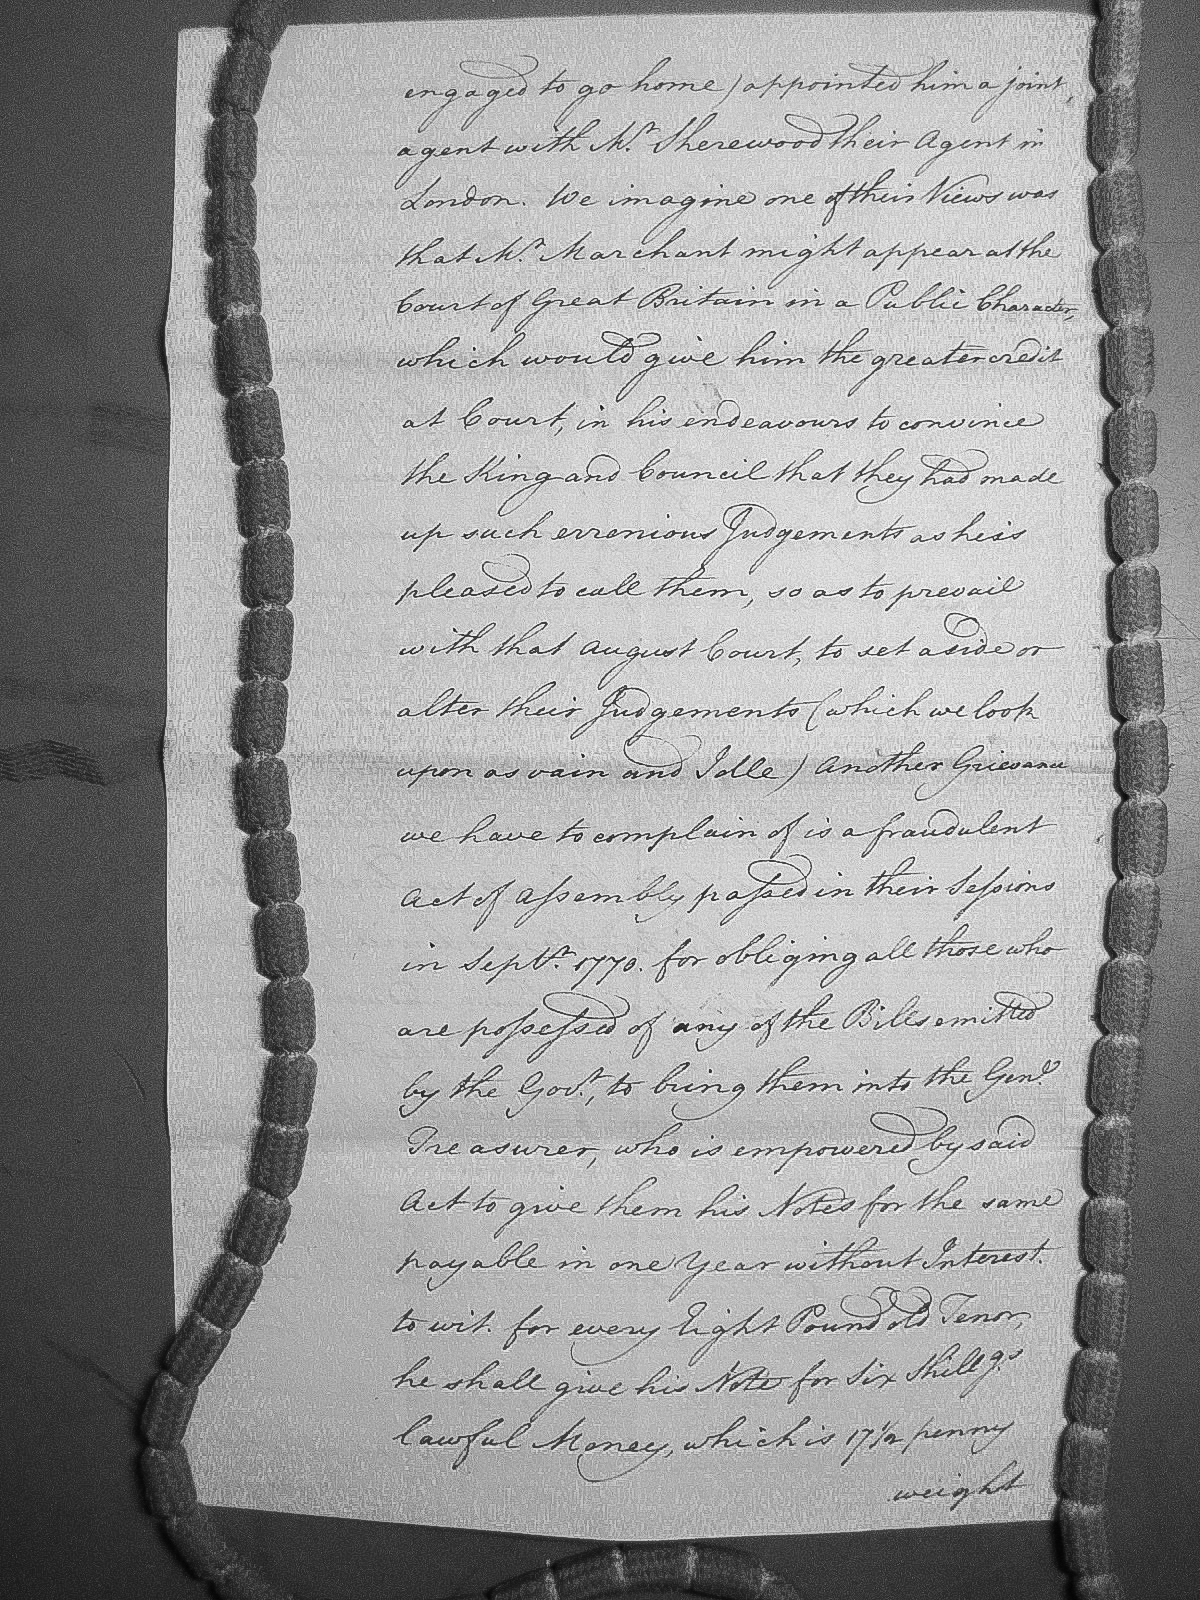 engaged to go home) appointed him a joint,
agent with Mr. Sherewood their Agent in
London. We imagine one of their Views was
that Mr. Marchant might appear at the
Court of Great Britain in a Public Character,
which would give him the greater credit
at Court, in his endeavours to convince
the King and Council that they had made
up such errenious Judgements as he is
pleased to call them, so as to prevail
with that August Court, to set aside or
alter their Judgements (which we look
upon as vain and Idle) Another Grievance
we have to complain of is a fraudulent
Act of Assembly passed in their Sessions
in Septr. 1770. for obliging all those who
are possessed of any of the Bills emitted
by the Govt., to bring them into the Genl.
Treasurer, who is empowered by said
Act to give them his Notes for the same
payable in one Year without Interest.
to wit. for every Eight Pound old Tenor,
he shall give his Note for Six Shillgs
lawful Money, which is 17½ penny
weight